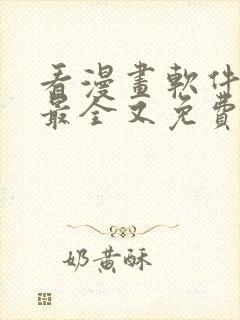 看漫畫軟件
最全又免費
奶黄酥